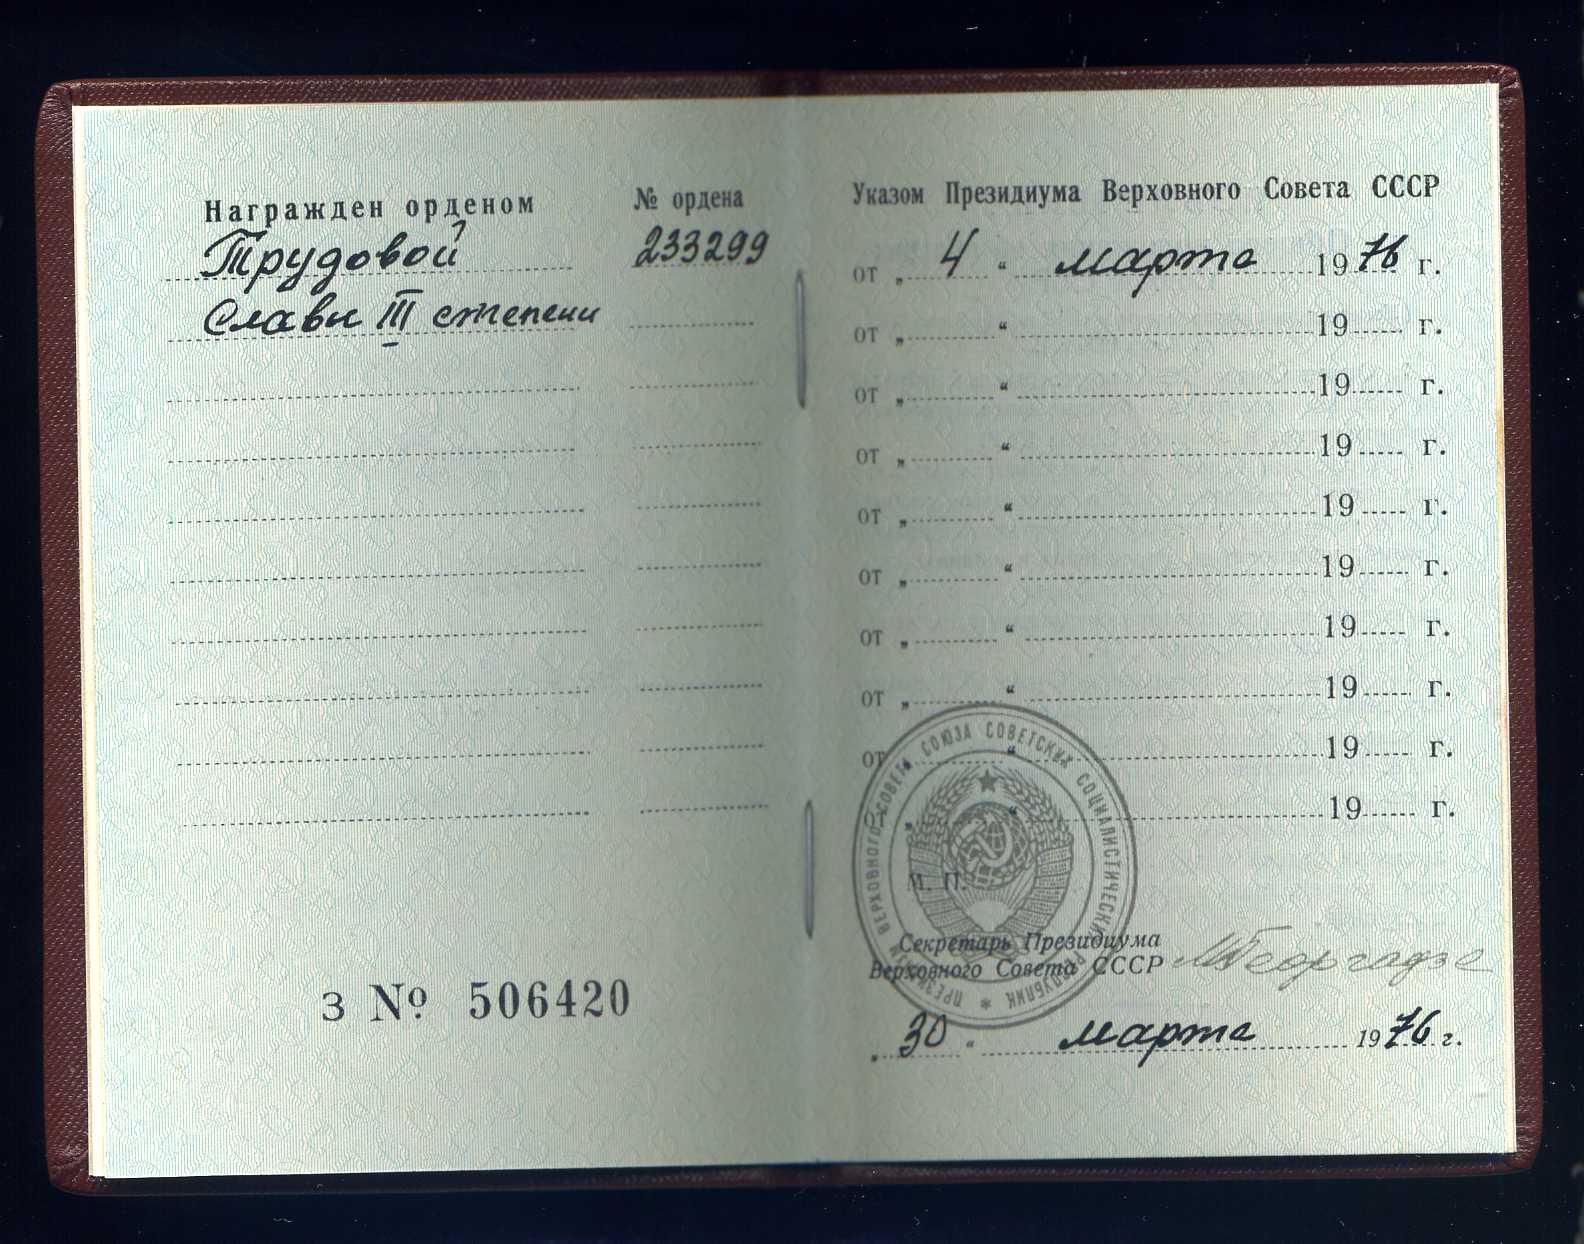 Награжден орденом № ордена
Трудовой 233299
Славы III степени
З № 506420
Указом Президиума Верховного Совета СССР
от „ 4 “ марта 1976 г.
от „ “ 19 г.
от „ “ 19 г.
от „ “ 19 г.
от „ “ 19 г.
от „ “ 19 г.
от „ “ 19 г.
от „ “ 19 г.
от „ “ 19 г.
от „ “ 19 г.
ПРЕЗИДИУМ ВЕРХОВНОГО СОВЕТА СОЮЗА СОВЕТСКИХ СОЦИАЛИСТИЧЕСКИХ РЕСПУБЛИК
М. П.
Секретарь Президиума
Верховного Совета СССР МГеоргадзе
„ 30 “ марта 1976 г.